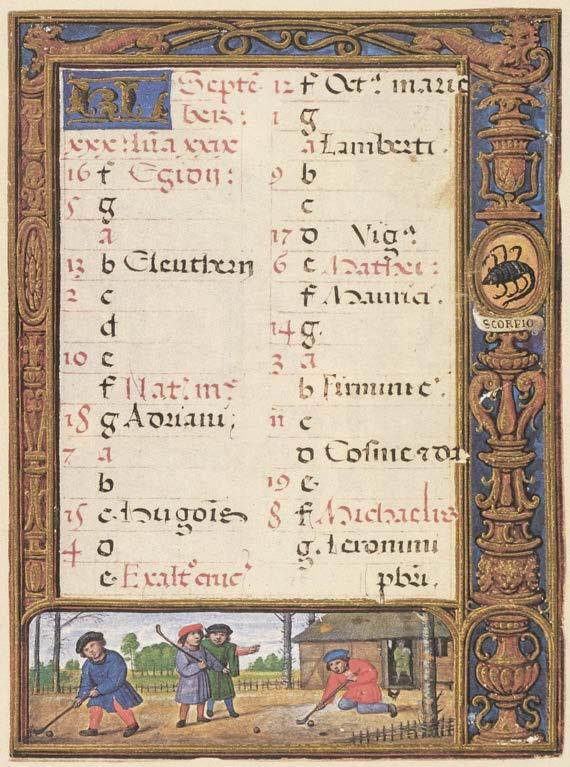 KL Septe
ber:
xxx lũa xxix
16 f Egidij:
5 g
a
13 b Eleutherij
2 c
d
10 e
f Nat. mr.
18 g Adriani;
7 a
b
15 c Hugois
4 d
e Exalt. cruc.
12 f Oct. marie
1 g
a Lamberti.
9 b
c
17 d Vig.
6 e Mathei:
f Maurici.
14 g.
3 a
b Firmini e.
11 c
d Cosme & da
19 e
8 f Michaelis
g. Ieronimi
pbri.
SCORPIO